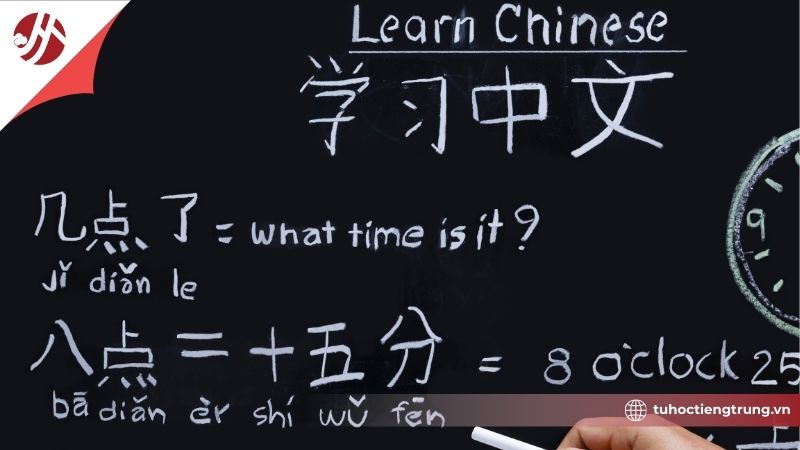 Learn Chinese
学习中文
9
几点了 = what time is it?
jǐ diǎn le
八点二十五分 = 8 o'clock 25
bā diǎn èr shí wǔ fēn
tuhoctiengtrung.vn